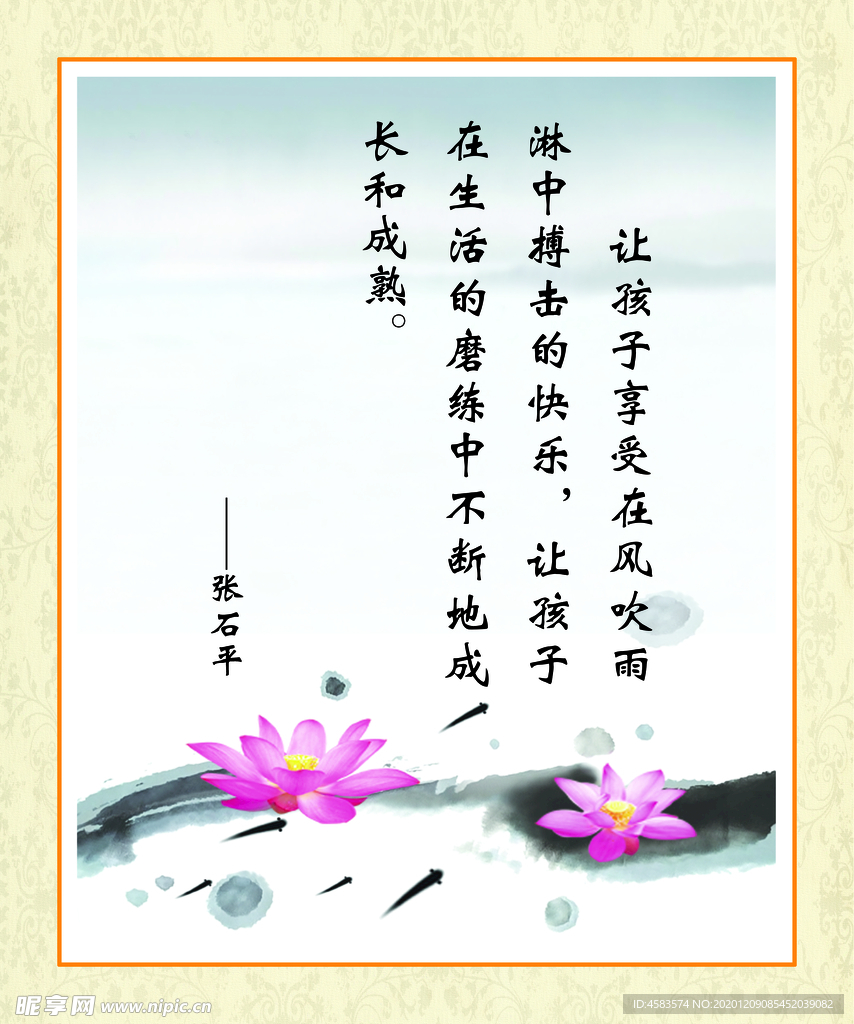 让孩子享受在风吹雨
淋中搏击的快乐，让孩子
在生活的磨练中不断地成
长和成熟。
——张石平
昵享网 www.nipic.cn
ID:4583574 NO:20201209085452039082